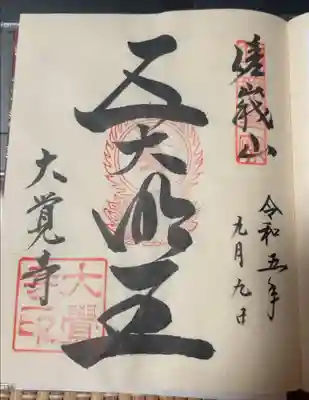 嵯峨山
令和五年
九月九日
五大明王
大覚寺
大覺
寺印